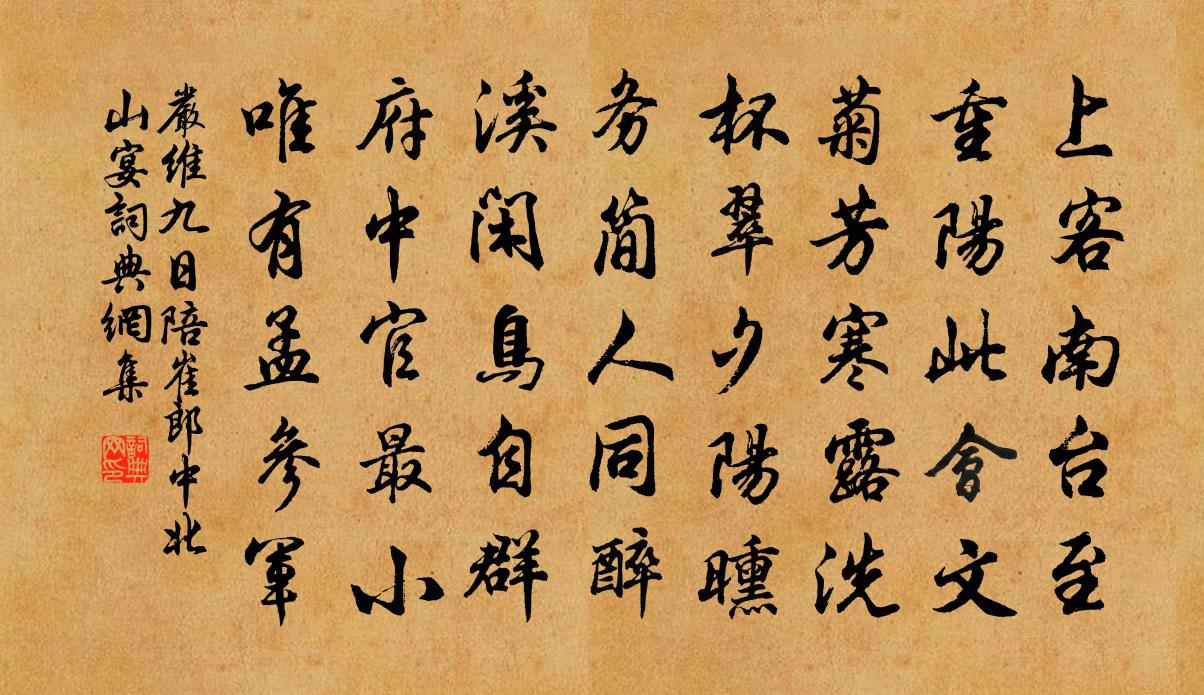 上客南台至
重陽此會文
菊芳寒露洗
杯翠夕陽曛
务简人同醉
溪闲鳥自群
府中官最小
唯有孟參军
嚴維九日陪崔郎中北
山宴詞典網集
詞典
网印